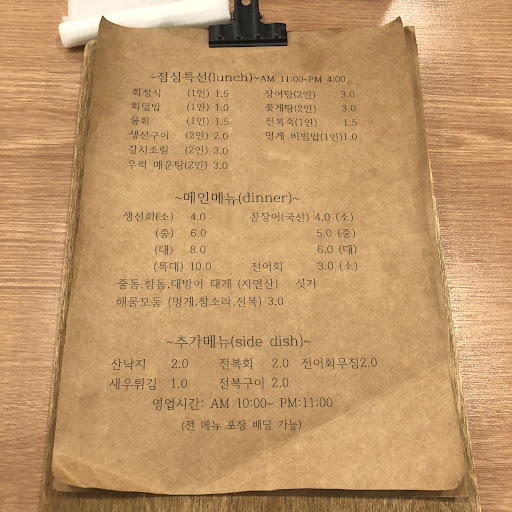 ~점심특선(lunch)~AM 11:00~PM 4:00
회정식 (1인) 1.5 장어탕(2인) 3.0
회덮밥 (1인) 1.0 꽃게탕(2인) 3.0
물회 (1인) 1.5 전복죽(1인) 1.5
생선구이 (2인) 2.0 멍게 비빔밥(1인)1.0
갈치조림 (2인) 3.0
우럭 매운탕(2인) 3.0
~메인메뉴(dinner)~
생선회(소) 4.0 꼼장어(국산) 4.0 (소)
(중) 6.0 5.0 (중)
(대) 8.0 6.0 (대)
(특대) 10.0 전어회 3.0 (소)
줄돔.참돔.대방어 대게 (자연산) 싯가
해물모둠 (멍게.참소라.전복) 3.0
~추가메뉴(side dish)~
산낙지 2.0 전복회 2.0 전어회무침2.0
새우튀김 1.0 전복구이 2.0
영업시간: AM 10:00~ PM:11:00
(전 메뉴 포장 배달 가능)